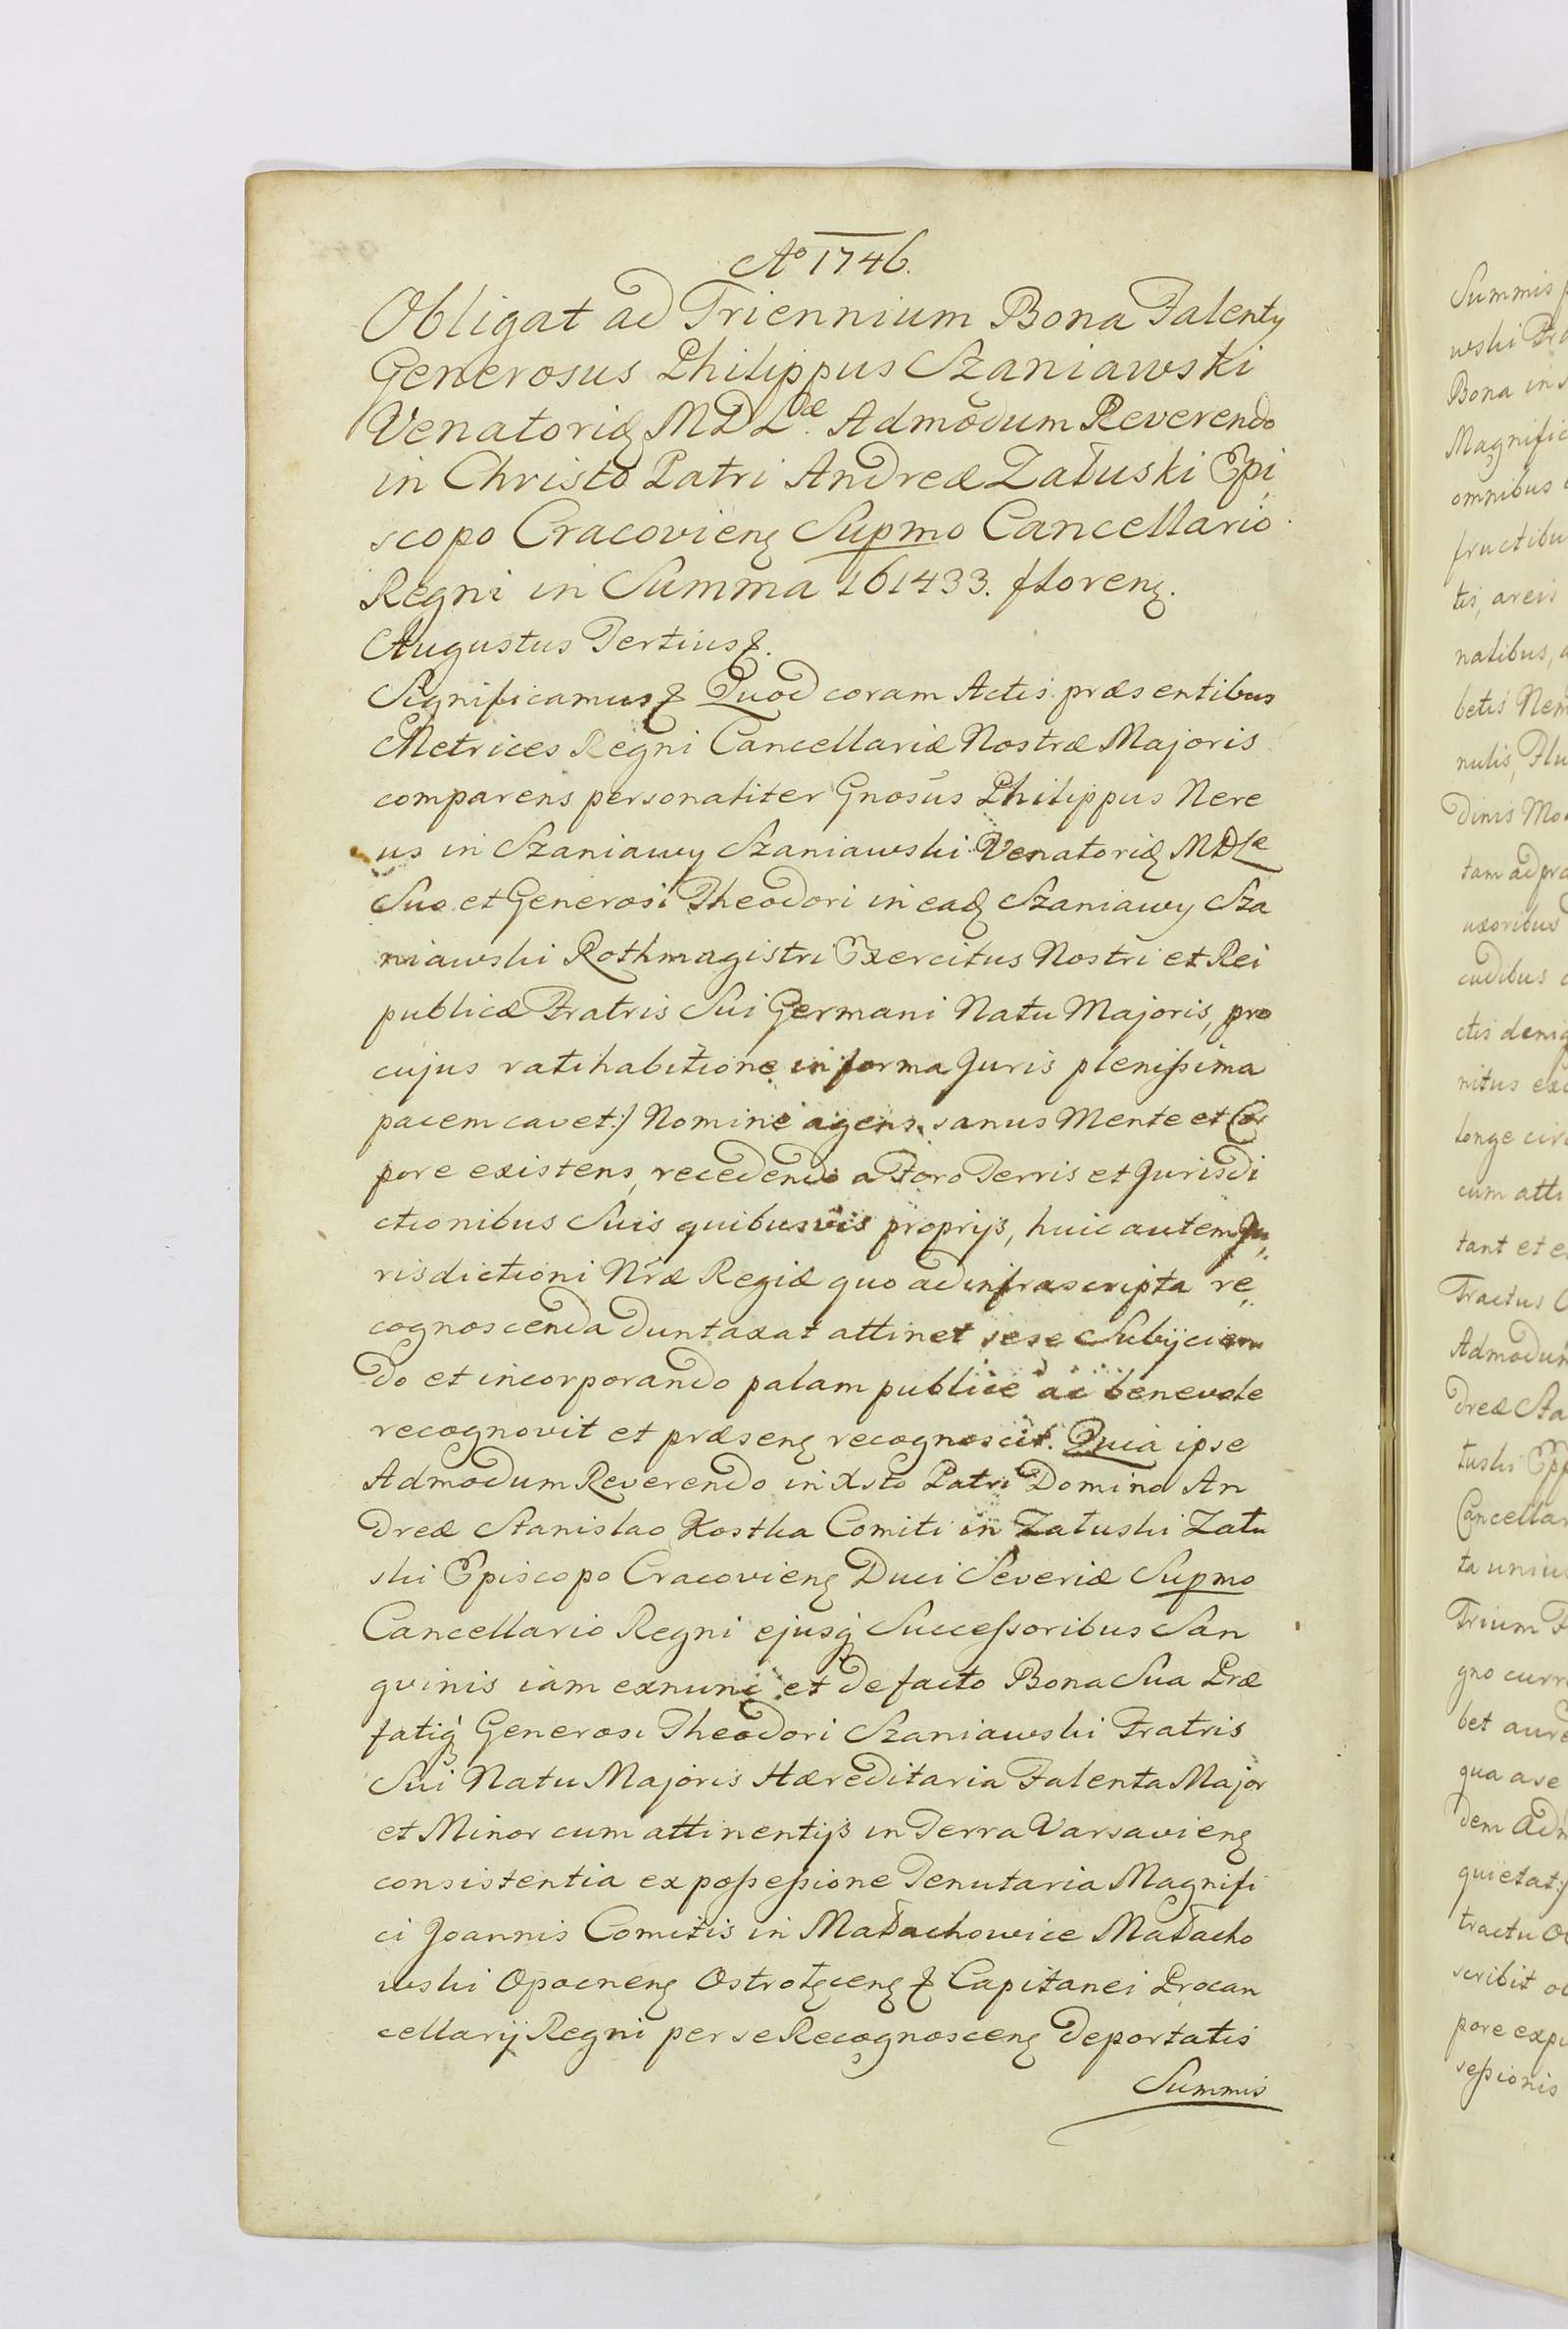 Aº 1746.
Obligat ad Triennium Bona Falenty
Generosus Philippus Szaniawski
Venatorid MDLdæ Admodum Reverendo
in Christo Patri Andreæ Załuski Epi
scopo Cracovieng Supmo Cancellario
Regni in Summa 161433. floreng.
Augustus Tertius &.
Significamus & Quod coram Actis præsentibus
Metrices Regni Cancellariæ Nostræ Majoris
comparens personaliter Gnosus Philippus Nere
us in Szaniawy Szaniawski Venatorid MDLæ
Suo et Generosi Theodori in ead Szaniawy Sza
niawski Rothmagistri Exercitus Nostri et Rei
publicæ Fratris Sui Germani Natu Majoris, pro
cujus ratihabitione in forma Juris plenissima
pacem cavet:/ Nomine agens, sanus Mente et Cor
pore existens, recedendo a Foro Terris et Jurisdi
ctionibus Suis quibusvis proprijs, huic autem Ju
risdictioni Nræ Regiæ quo ad infrascripta re
cognoscenda duntaxat attinet sese Subijcien
do et incorporando palam publice ac benevole
recognovit et præseng recognoscit. Quia ipse
Admodum Reverendo in Xsto Patri Domino An
dreæ Stanislao Kostka Comiti in Załuski Zału
ski Episcopo Cracovieng Duci Severiæ Supmo
Cancellario Regni ejusq Successoribus San
gvinis iam exnunc et de facto Bona Sua Præ
fatiq Generosi Theodori Szaniawski Fratris
Sui Natu Majoris Hæreditaria Falenta Major
et Minor cum attinentijs in Terra Varsavieng
consistentia ex possessione Tenutaria Magnifi
ci Joannis Comitis in Małachowice Małacho
wski Opocneng Ostrołęceng & Capitanei Procan
cellarij Regni per se Recognosceng deportatis
Summis
Summis
wski Fra
Bona in
Magnific
omnibus
fructibu
tis, areis
natibus,
betis Nem
nulis, Flu
dinis Mo
tam ad pra
uxoribus
cudibus
ctis deniq
nitus
longe circ
cum atti
tant et
Tractus
Admodum
dreæ Sta
łuski Epp
Cancellar
ta unius
Trium
gno curr
bet aure
qua a se
dem Adm
quietat:/
tractu
scribit
pore
sessionis